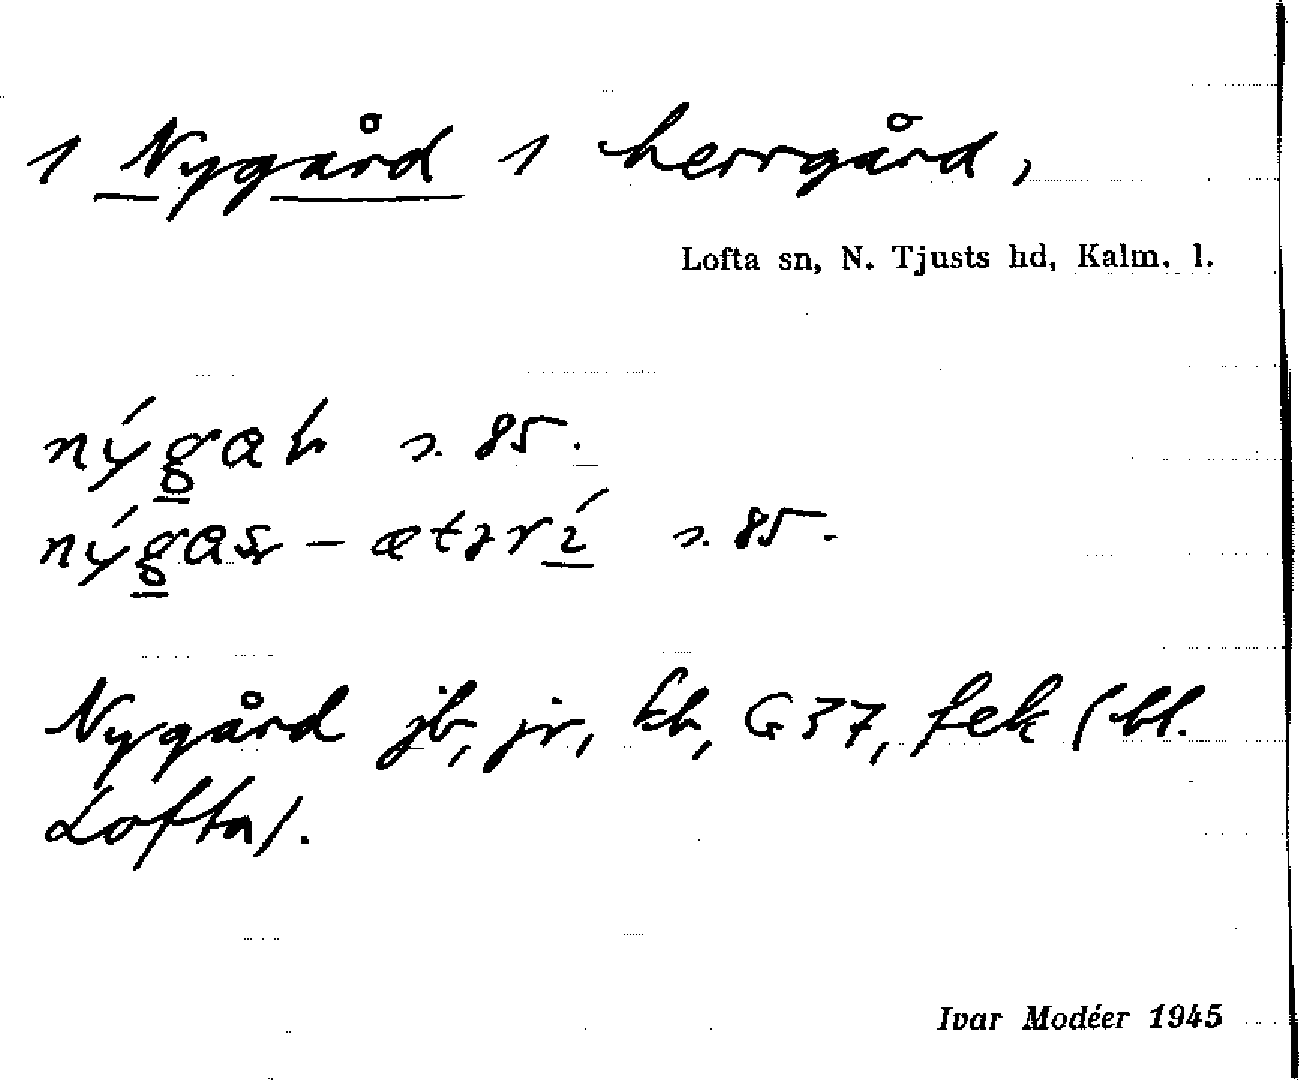 1 Nygård 1 herrgård,
Lofta sn, N. Tjusts hd, Kalm. l.
s. 85.
s. 85.
Nygård jb, jr, kb, G 37, fek (bl.
Lofta).
Ivar Modéer 1945